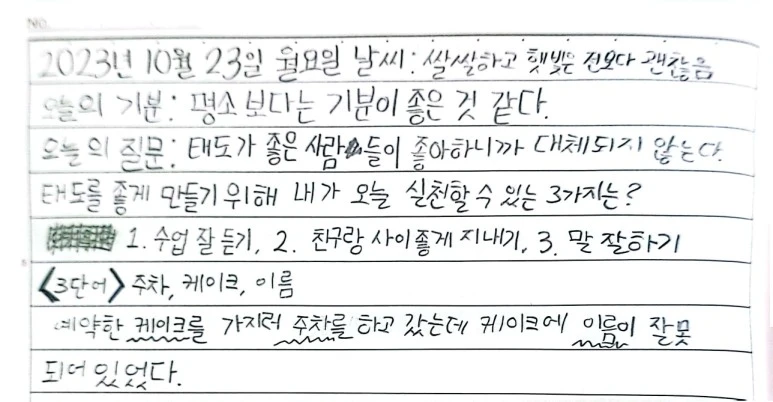 No.
2023년 10월 23일 월요일 날씨: 쌀쌀하고 햇빛은 전보다 괜찮음
오늘의 기분: 평소보다는 기분이 좋은 것 같다.
오늘의 질문: 태도가 좋은 사람들이 좋아하니까 대체되지 않는다.
태도를 좋게 만들기 위해 내가 오늘 실천할 수 있는 3가지는?
1. 수업 잘 듣기, 2. 친구랑 사이좋게 지내기, 3. 말 잘하기
<3단어> 주차, 케이크, 이름
예약한 케이크를 가지러 주차를 하고 갔는데 케이크에 이름이 잘못
되어 있었다.